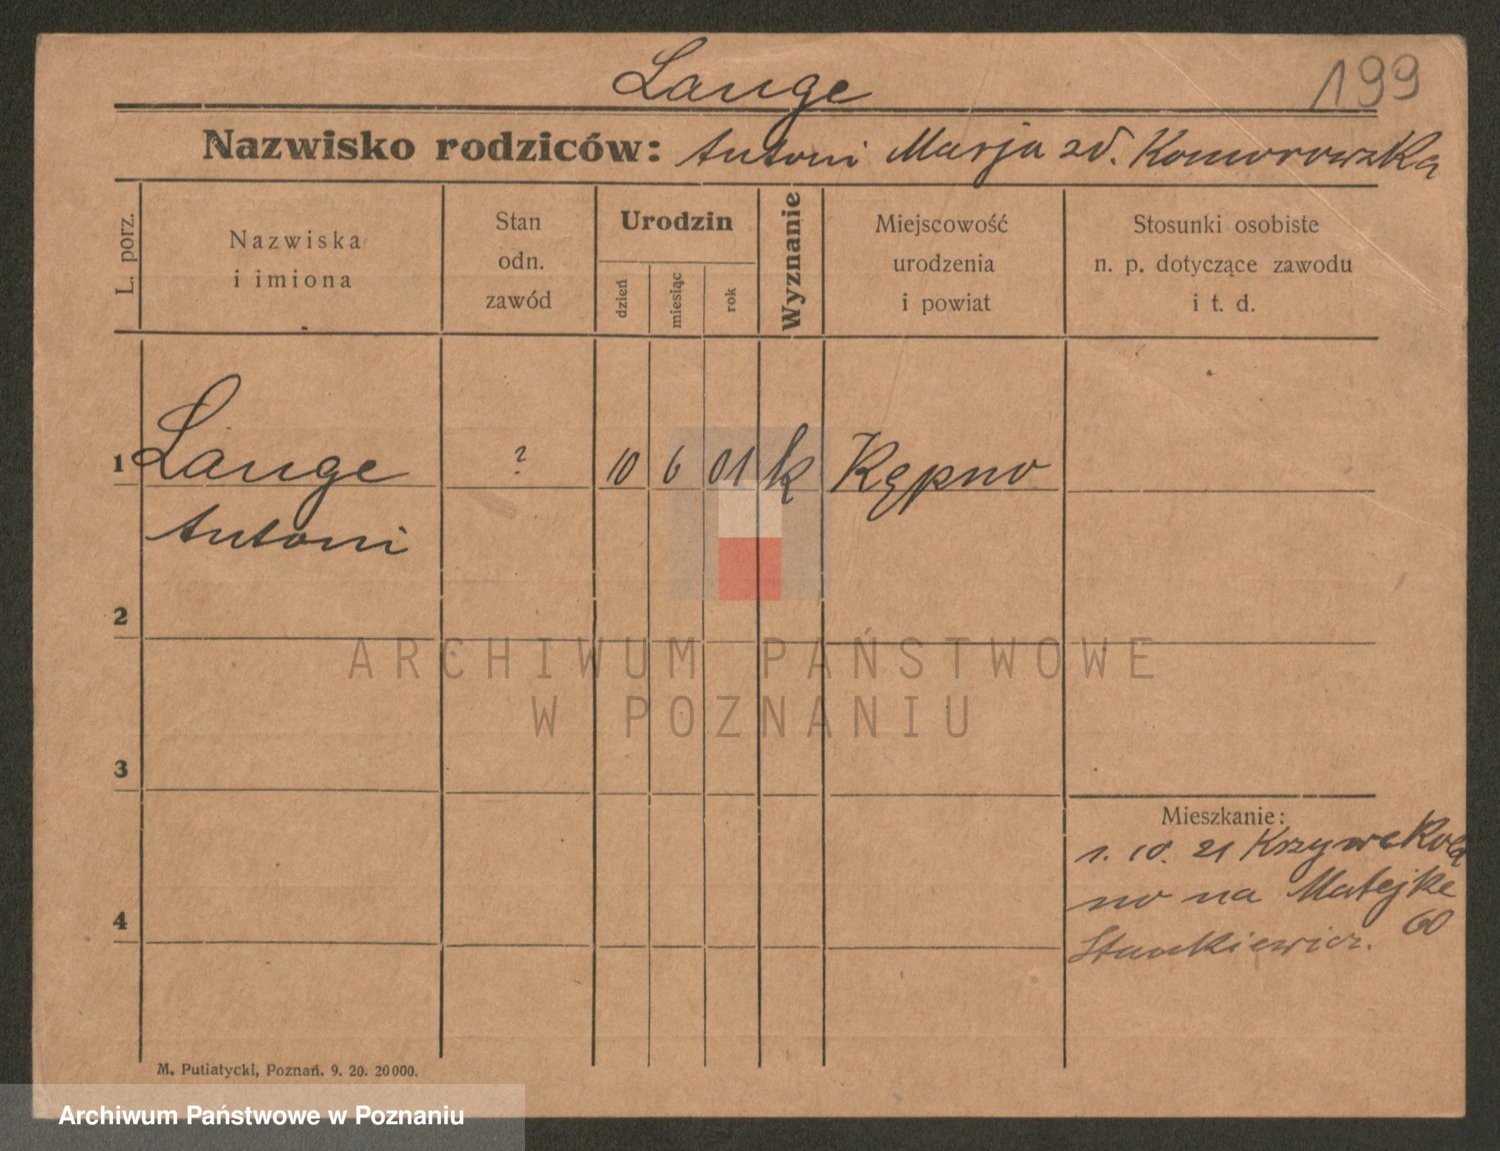 Lange
199
Nazwisko rodziców: Antoni Marja zd. Komorowska
L. porz.
Nazwiska
i imiona
Stan
odn.
zawód
Urodzin
dzień
miesiąc
rok
Wyznanie
Miejscowość
urodzenia
i powiat
Stosunki osobiste
n. p. dotyczące zawodu
i t. d.
1 Lange ? 10 6 01 k Kępno
Antoni
2
3
4
Mieszkanie:
1. 10. 21
no na Matejke
60
M. Putiatycki, Poznań. 9. 20. 20000.
ARCHIWUM PAŃSTWOWE
W POZNANIU
Archiwum Państwowe w Poznaniu